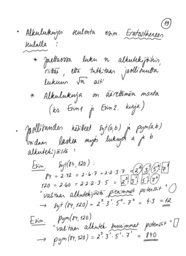 19
• Alkulukujen hulosta esim. Eratostheneen
kululla :
◦ jaettavan luku n alkutekijöihin,
riittää, että tutkitaan jaollisuutta
lukuun √n asti
◦ Alkulukuja on äärettömän monta
(ks. Esim 1 ja Esim 2. kirja)
• Jaollisuuden käsitteet syt(a,b) ja pym(a,b)
voidaan laskea myös lukujen a ja b
alkutekijöistä :
Esim. Syt(84,120) :
84 = 2·42 = 2·6·7 = 2·2·3·7
120 = 2·60 = 2·2·2·3·5
"valitaan alkutekijöistä pienimmät potenssit"
→ syt(84,120) = 2²·3¹·5⁰·7⁰ = 4·3 = 12
Esim. pym(84,120)
"valitaan alkutek. suurimmat potenssit"
→ pym(84,120) = 2³·3¹·5¹·7¹ = 840